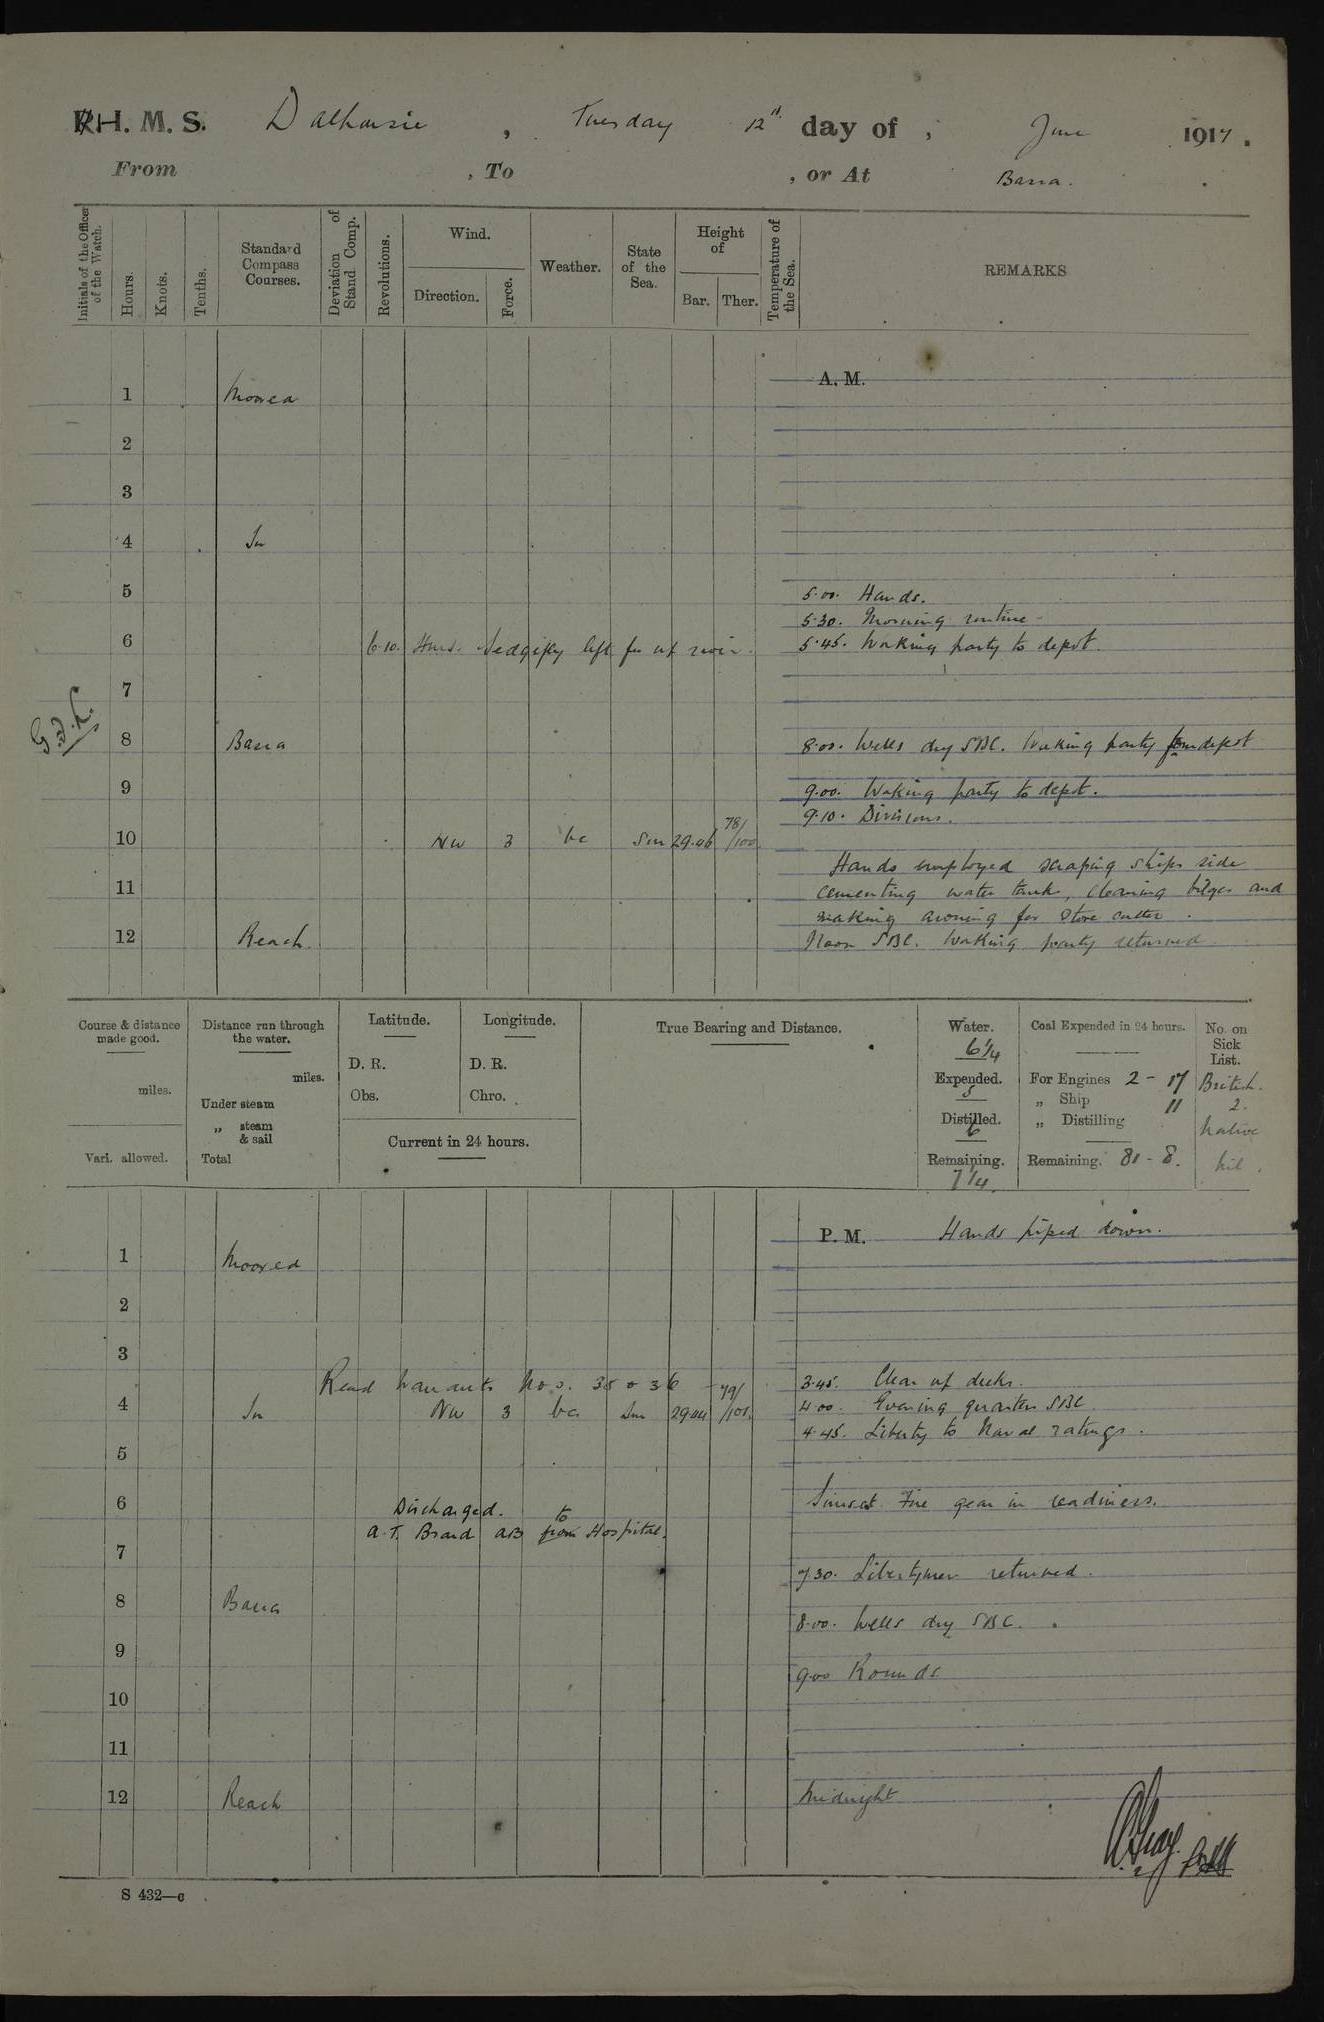 H. M. S. Dalhousie, Tuesday 12th day of, June 1917.
From , To , or At Basra.
Initials of the Officer of the Watch.
Hours.
Knots.
Tenths.
Standard Compass Courses.
Deviation of Stand Comp.
Revolutions.
Wind.
Direction.
Force.
Weather.
State of the Sea.
Height of
Bar. Ther.
Temperature of the Sea.
REMARKS
A. M.
1 Moored
2
3
4 In
5 5.00. Hands.
5.30. Morning routine
6 6.10. left for up river. 5.45. Working party to depot.
7
8 Basra 8.00. Wells dry SBC. Working party from depot
9 9.00. Working party to depot.
9.10. Divisions.
10 NW 3 bc Sm 29.46 78/100
Hands employed scraping ships side
11 cementing water tank, cleaning bilges and
making awning for store cutter.
12 Reach. Noon SBC. Working party returned
Course & distance made good.
miles.
Vari. allowed.
Distance run through the water.
miles.
Under steam
„ steam & sail
Total
Latitude.
D. R.
Obs.
Longitude.
D. R.
Chro.
Current in 24 hours.
True Bearing and Distance.
Water.
6 1/4
Expended.
5
Distilled.
6
Remaining.
7 1/4.
Coal Expended in 24 hours.
For Engines 2 - 17
„ Ship 11
„ Distilling
Remaining. 81 - 8.
No. on Sick List.
British.
2.
Native
nil.
P. M. Hands piped down.
1 Moored
2
3
Read Warrants Nos. 35 & 36
3.45. Clear up decks.
4 In NW 3 bc Sm 29.44 79/101. 4.00. Evening quarters SBC
4.45. Liberty to Naval ratings.
5
6 Sunset Fire gear in readiness.
Discharged.
A.T. AB from to Hospital.
7
7.30. Libertymen returned.
8 Basra
8.00. Wells dry SBC.
9
9.00 Rounds
10
11
12 Reach Midnight
S 432—c